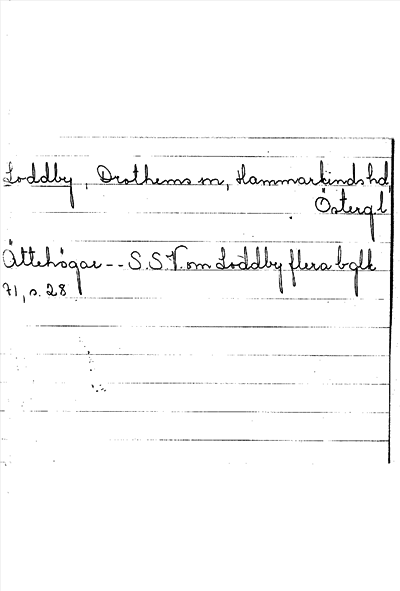 Loddby, Drothems sn, Hammarkinds hd,
Östergl
Ättehögar -- S.S.V. om Loddby flera bglk
71, s. 28